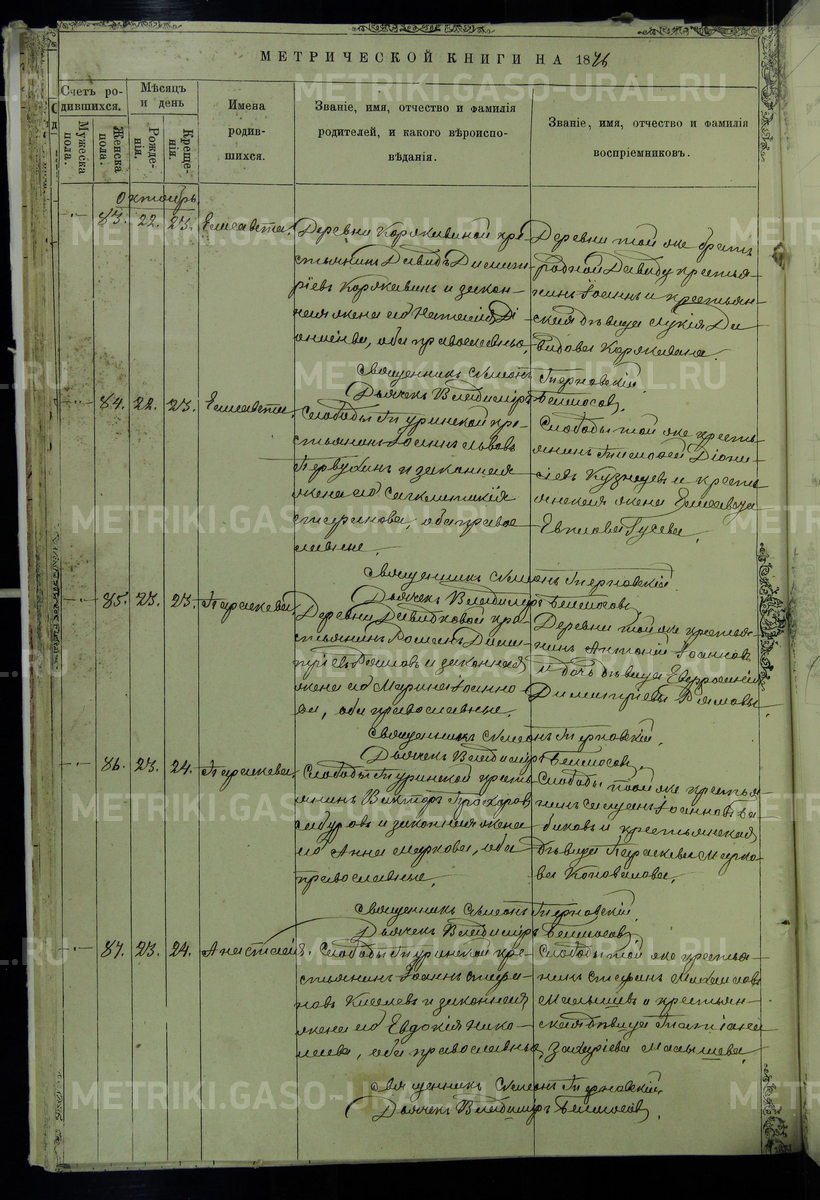 МЕТРИЧЕСКОЙ КНИГИ НА 1876
Счетъ ро-
дившихся.
Мѣсяцъ
и день
Мужеска
пола.
Женска
пола.
Рожде-
нія.
Креще-
нія.
Имена
родив-
шихся.
Званіе, имя, отчество и фамилія
родителей, и какого вѣроиспо-
вѣданія.
Званіе, имя, отчество и фамилія
воспріемниковъ.
Октябрь
83. 22. 23. Елисавета.
Деревни Корякиной кре-
стьянинъ Давидъ Димит-
ріевъ Корякинъ и закон-
ная жена его Наталія Ді-
оба православные,
Деревни той же братъ
родной Давиду крестья-
нинъ Іоаннъ и крестьян-
ская дѣвица Лукія Да
видова Корякина.
Священникъ Симеонъ Терновскій.
Дьячекъ Владиміръ Бѣлоусовъ.
84. 22. 23. Елисавета.
Слободы Туринской кре-
стьянинъ Іоаннъ Львовъ
Первухинъ и законная
жена его Сигклитикія
Стефанова, оба право
славные.
Слободы той же кресть-
янинъ Тимофей Діони-
сіевъ Кузнецовъ и кресть
янская жена Елисавета
Гусева.
Священникъ Симеонъ Терновскій.
Дьячекъ Владиміръ Бѣлоусовъ.
85. 23. 23. Параскева.
Деревни Давидковой кре-
стьянинъ Романъ Дими-
тріевъ и законная
жена его Марина Іоанно
ва, оба православные.
Деревни той же крестья-
нинъ Антоній Іоанновъ
и дочь дѣвица Евфросинія
Димитріева
Священникъ Симеонъ Терновскій.
Дьячекъ Владиміръ Бѣлоусовъ.
86. 23. 24. Параскева.
Слободы Туринской кресть
янинъ Викторъ Прохоровъ
Сабуровъ и законная жена
его Анна Маркова, оба
православные.
Слободы той же крестья
нинъ Іоанновъ Ба
биковъ и крестьянская
дѣвица Параскева Марко-
ва Коновалова.
Священникъ Симеонъ Терновскій.
Дьячекъ Владиміръ Бѣлоусовъ
87. 23. 24. Анастасія.
Слободы Туринской кре-
стьянинъ Іоаннъ Стефа-
новъ Киселевъ и законная
жена его Евдокія Нико-
лаева, оба православные,
Слободы той же крестья-
нинъ Стефанъ Михаиловъ
Малышевъ и крестьян-
ская дѣвица Татіана
Захаріева Малышева.
Священникъ Симеонъ Терновскій.
Дьячекъ Владиміръ Бѣлоусовъ.
METRIKI.GASO-URAL.RU